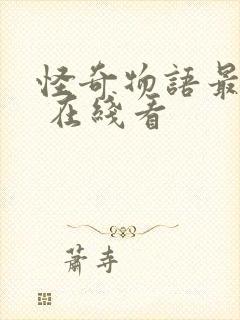 怪奇物語最
在綫看
蕭寺